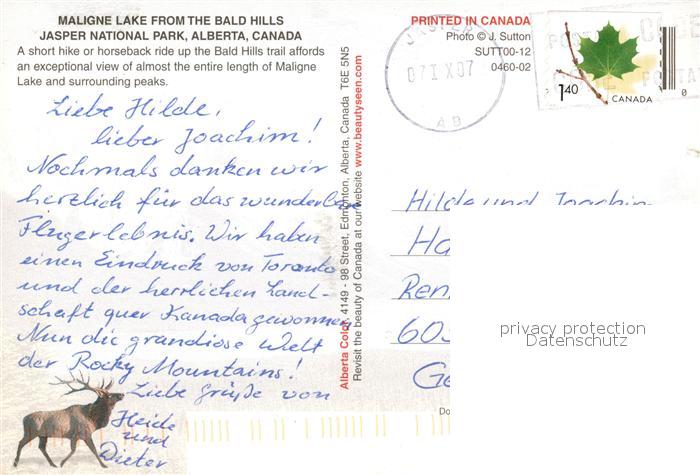 MALIGNE LAKE FROM THE BALD HILLS
JASPER NATIONAL PARK, ALBERTA, CANADA
A short hike or horseback ride up the Bald Hills trail affords
an exceptional view of almost the entire length of Maligne
Lake and surrounding peaks.
Liebe Hilde,
lieber Joachim!
Nochmals danken wir
herzlich für das wunderbare
Flugerlebnis. Wir haben
einen Eindruck von Toronto
und der herrlichen Land-
schaft quer Kanada gewonnen.
Nun die grandiose Welt
der Rocky Mountains!
Liebe Grüße von
Heide
und
Dieter
Alberta Color, 4149 - 98 Street, Edmonton, Alberta, Canada T6E 5N5
Revisit the beauty of Canada at our website www.beautyseen.com
PRINTED IN CANADA
Photo © J. Sutton
SUTT00-12
0460-02
JASPER
07 I X 07
AB
POST
CODE
POSTAL
1.40
CANADA
0
Hilde und Joachim
Ha
Ren
60
Ge
privacy protection
Datenschutz
Do